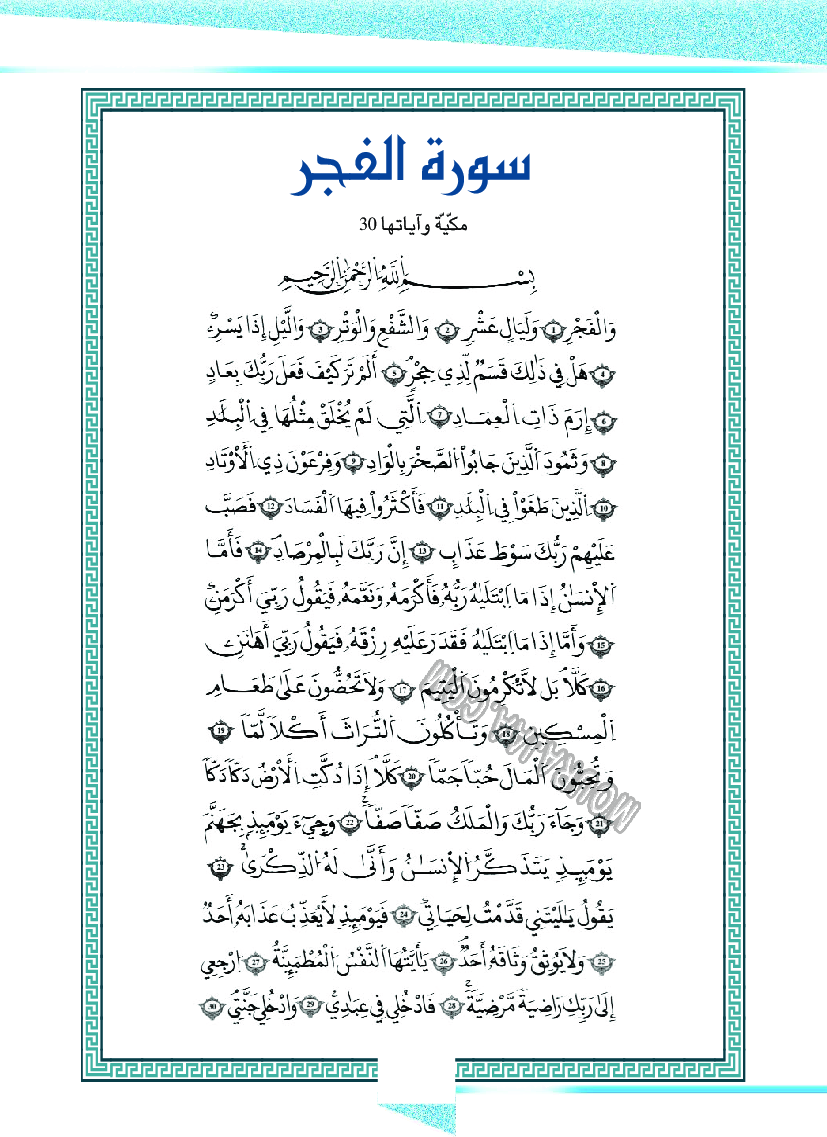 سورة الفجر
مكيّة وآياتها 30
بِسْمِ اللَّهِ الرَّحْمَٰنِ الرَّحِيمِ
وَالْفَجْرِ 1 وَلَيَالٍ عَشْرٍ 2 وَالشَّفْعِ وَالْوَتْرِ 3 وَالَّيْلِ إِذَا يَسْرِ
4 هَلْ فِي ذَٰلِكَ قَسَمٌ لِّذِي حِجْرٍ 5 أَلَمْ تَرَ كَيْفَ فَعَلَ رَبُّكَ بِعَادٍ
6 إِرَمَ ذَاتِ الْعِمَادِ 7 الَّتِي لَمْ يُخْلَقْ مِثْلُهَا فِي الْبِلَٰدِ
8 وَثَمُودَ الَّذِينَ جَابُوا الصَّخْرَ بِالْوَادِ 9 وَفِرْعَوْنَ ذِي الْأَوْتَادِ
10 الَّذِينَ طَغَوْا فِي الْبِلَٰدِ 11 فَأَكْثَرُوا فِيهَا الْفَسَادَ 12 فَصَبَّ
عَلَيْهِمْ رَبُّكَ سَوْطَ عَذَابٍ 13 إِنَّ رَبَّكَ لَبِالْمِرْصَادِ 14 فَأَمَّا
الْإِنسَٰنُ إِذَا مَا ابْتَلَيٰهُ رَبُّهُ فَأَكْرَمَهُ وَنَعَّمَهُ فَيَقُولُ رَبِّيَ أَكْرَمَنِ
15 وَأَمَّا إِذَا مَا ابْتَلَيٰهُ فَقَدَرَ عَلَيْهِ رِزْقَهُ فَيَقُولُ رَبِّيَ أَهَٰنَنِ
16 كَلَّا بَل لَّا تُكْرِمُونَ الْيَتِيمَ 17 وَلَا تَحُضُّونَ عَلَىٰ طَعَامِ
الْمِسْكِينِ 18 وَتَأْكُلُونَ التُّرَاثَ أَكْلًا لَّمًّا 19
وَتُحِبُّونَ الْمَالَ حُبًّا جَمًّا 20 كَلَّا إِذَا دُكَّتِ الْأَرْضُ دَكًّا دَكًّا
21 وَجَاءَ رَبُّكَ وَالْمَلَكُ صَفًّا صَفًّا 22 وَجِيءَ يَوْمَئِذٍ بِجَهَنَّمَ
يَوْمَئِذٍ يَتَذَكَّرُ الْإِنسَٰنُ وَأَنَّىٰ لَهُ الذِّكْرَىٰ 23
يَقُولُ يَٰلَيْتَنِي قَدَّمْتُ لِحَيَاتِي 24 فَيَوْمَئِذٍ لَّا يُعَذِّبُ عَذَابَهُ أَحَدٌ
25 وَلَا يُوثِقُ وَثَاقَهُ أَحَدٌ 26 يَٰأَيَّتُهَا النَّفْسُ الْمُطْمَئِنَّةُ 27 ارْجِعِي
إِلَىٰ رَبِّكِ رَاضِيَةً مَّرْضِيَّةً 28 فَادْخُلِي فِي عِبَادِي 29 وَادْخُلِي جَنَّتِي 30